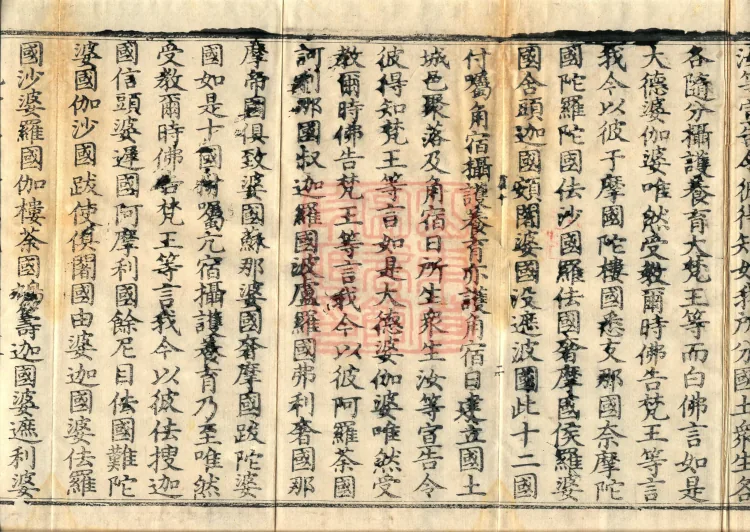 各隨分攝護養育大梵王等而白佛言如是
大德婆伽婆唯然受教爾時佛告梵王等言
我今以彼于摩國陀樓國悉支那國奈摩陀
國陀羅陀國佉沙國羅佉國奢摩國侯羅婆
國舍頭迦國頞闍婆國没遮波國此十二國
付囑角宿攝護養育亦護角宿日建立國土
城邑聚落及角宿日所生衆生汝等宣告令
彼得知梵王等言如是大德婆伽婆唯然受
教爾時佛告梵王等言我今以彼阿羅荼國
訶利那國叔迦羅國波盧羅國弗利奢國那
摩帝國俱致婆國蘇那婆國奢摩國跋陀婆
國如是十國付囑亢宿攝護養育乃至唯然
受教爾時佛告梵王等言我今以彼佉搜迦
國信頭婆遲國阿摩利國餘尼目佉國難陀
婆國伽沙國跋使俱闍國由婆迦國婆佉羅
國沙婆羅國伽樓荼國鵄籌迦國婆遮利婆